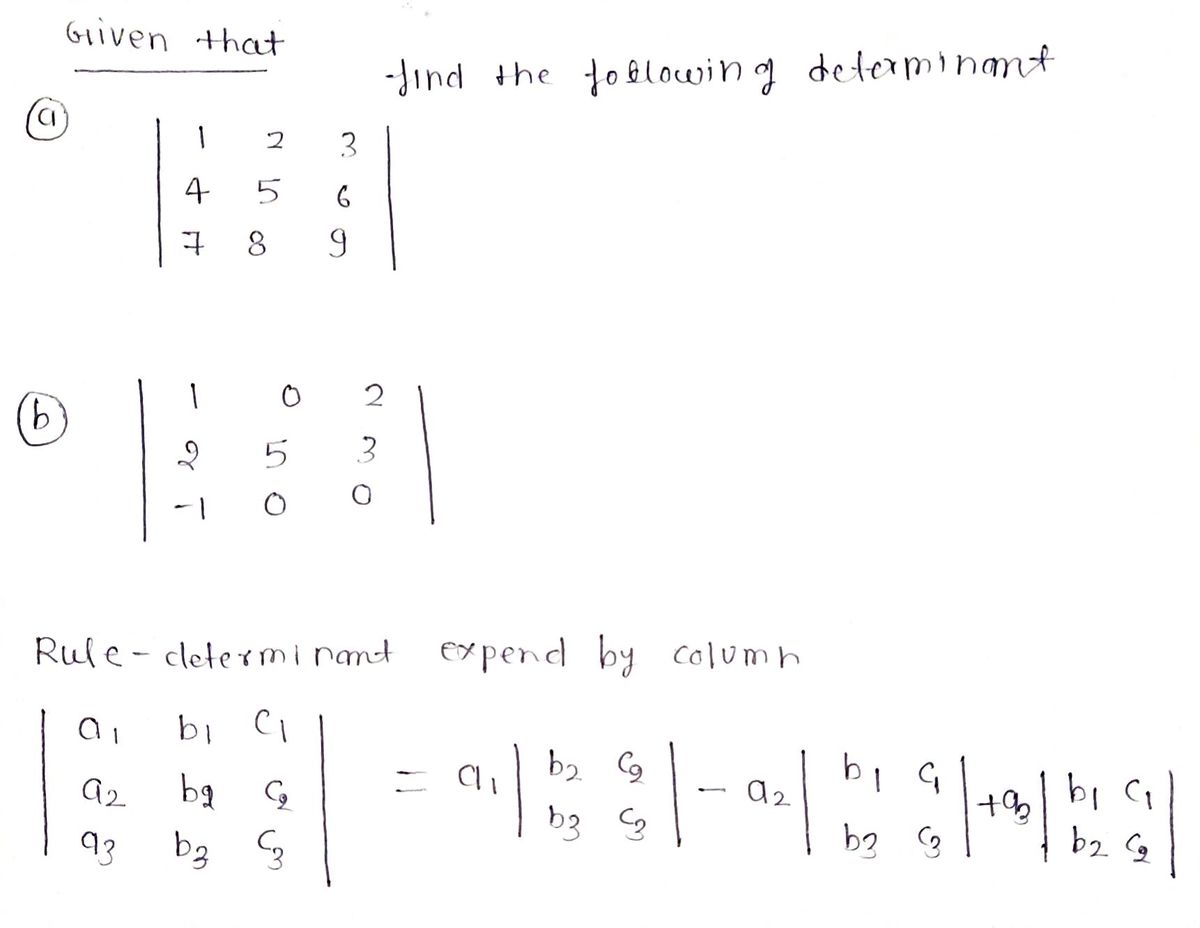 Given that
find the following determinant
(a)
| 1 2 3 |
| 4 5 6 |
| 7 8 9 |
(b)
| 1 0 2 |
| 2 5 3 |
| -1 0 0 |
Rule - determinant expend by column
| a1 b1 c1 |
| a2 b2 c2 | = a1 | b2 c2 | - a2 | b1 c1 | + a3 | b1 c1 |
| a3 b3 c3 | | b3 c3 | | b3 c3 | | b2 c2 |